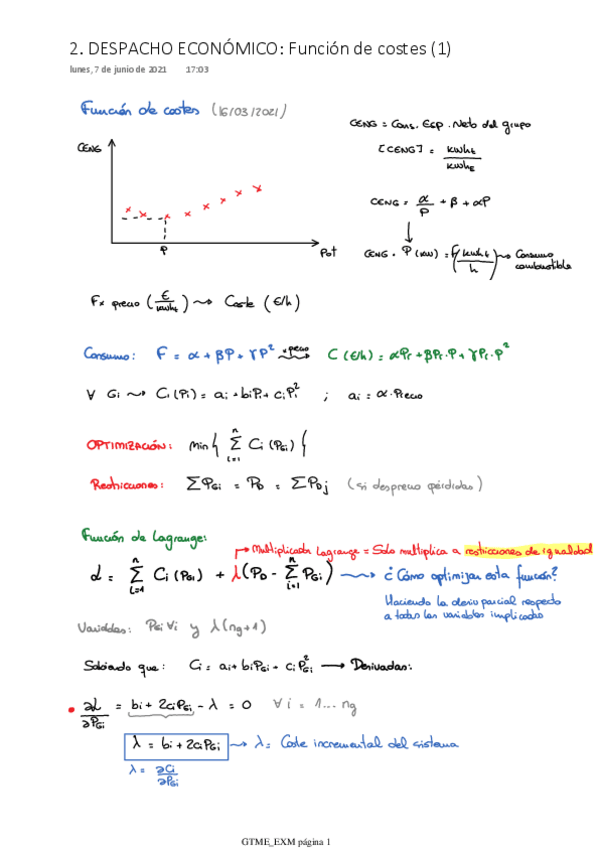 2. DESPACHO ECONÓMICO: Función de costes (1)
lunes, 7 de junio de 2021 17:03
Función de costes (16/03/2021)
CENG = Cons. Esp. Neto del grupo
CENG
[CENG] = kWht / kWhe
CENG = α/P + β + αP
P
Pot
CENG · P (kW) = F (kWht / h) → Consumo combustible
F x precio (€/kWht) ⇝ Coste (€/h)
Consumo: F = α + βP + γP² x precio ⇝ C (€/h) = αPr + βPr·P + γPr·P²
∀ Gi ⇝ Ci (Pi) = ai + biPi + ciPi² ; ai = α·Precio
OPTIMIZACIÓN: Min { Σ i=1 n Ci (PGi) }
Restricciones: ΣPGi = PD = ΣPDj (si desprecio pérdidas)
Función de Lagrange:
Multiplicador Lagrange = Solo multiplica a restricciones de igualdad
L = Σ i=1 n Ci (PGi) + λ(PD - Σ i=1 n PGi) ⇝ ¿Cómo optimizar esta función?
Haciendo la deriv parcial respecto
a todas las variables implicadas
Variables: PGi ∀i y λ (ng+1)
Sabiendo que: Ci = ai + biPGi + ciPGi² → Derivadas:
∂L/∂PGi = bi + 2ciPGi - λ = 0 ∀ i = 1... ng
λ = bi + 2ciPGi → λ = Coste incremental del sistema
λ = ∂Ci/∂PGi
GTME_EXM página 1